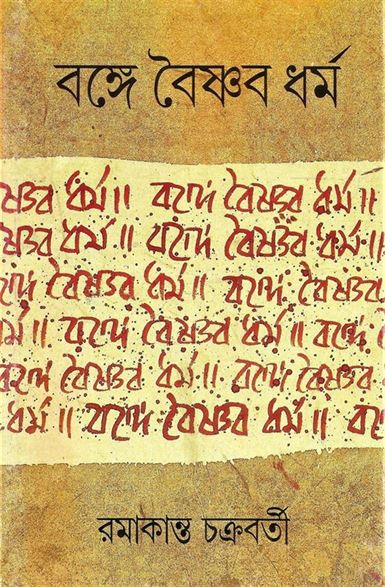 বঙ্গে বৈষ্ণব ধর্ম
ষ্ণব ধর্ম॥ বঙ্গে বৈষ্ণব ধর্ম॥
ষ্ণব ধর্ম॥ বঙ্গে বৈষ্ণব ধর্ম॥
ঙ্গে বৈষ্ণব ধর্ম॥ বঙ্গে বৈষ্ণব
র্ম॥ বঙ্গে বৈষ্ণব ধর্ম॥ বঙ্গে
বঙ্গে বৈষ্ণব ধর্ম॥ বঙ্গে বৈষ্ণব
ধর্ম॥ বঙ্গে বৈষ্ণব ধর্ম॥ ব
রমাকান্ত চক্রবর্তী